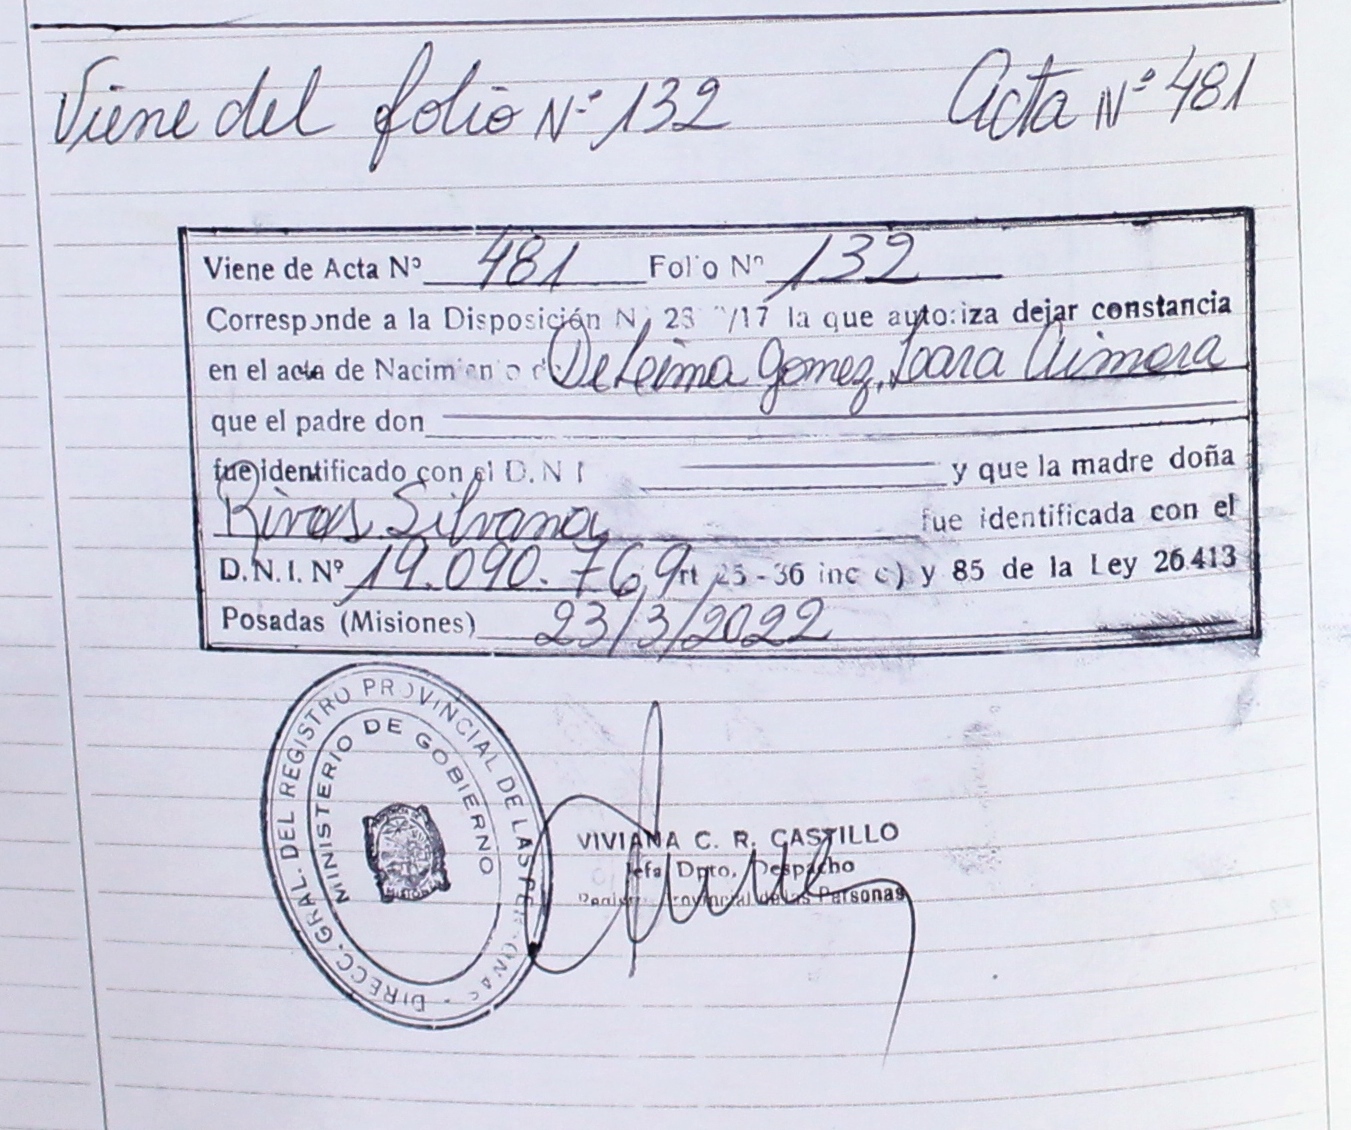 Viene del folio N° 132 Acta N° 481
Viene de Acta Nº 481 Folio Nº 132
Corresponde a la Disposición N 23 /17 la que autoriza dejar constancia
en el acta de Nacimien o d De Leima Gomez, Ioara Aimara
que el padre don
fue identificado con el D.N I y que la madre doña
Rivas Silvana fue identificada con el
D.N.I. Nº 19.090.769 rt 25 - 36 inc c) y 85 de la Ley 26.413
Posadas (Misiones) 23/3/2022
DIRECC. GRAL. DEL REGISTRO PROVINCIAL DE LAS PERSONAS
MINISTERIO DE GOBIERNO
VIVIANA C. R. CASTILLO
Jefa Dpto. Despacho
Provincial de las Personas